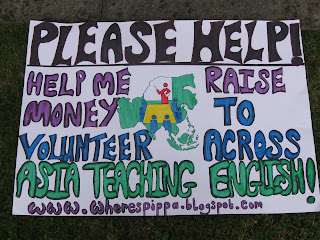 PLEASE HELP!
HELP ME RAISE
MONEY TO
VOLUNTEER ACROSS
ASIA TEACHING ENGLISH!
www.wherespippa.blogspot.com